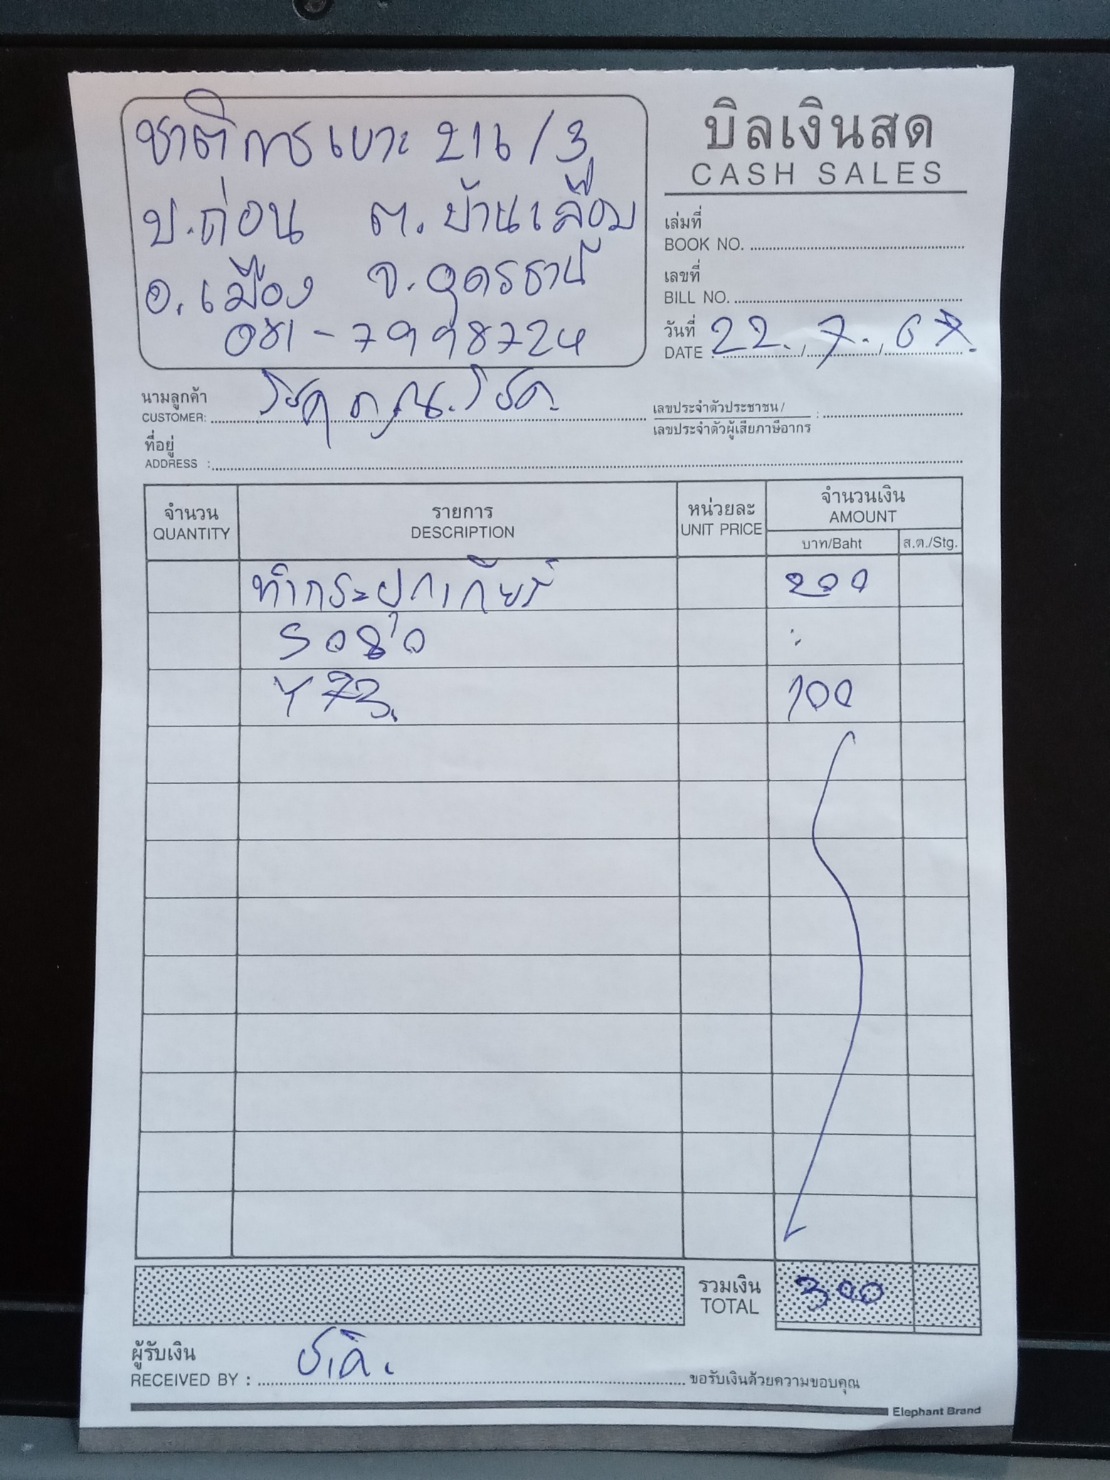 ชาติการเบาะ 216/3
บ.ถ่อน ต.บ้านเลื่อม
อ.เมือง จ.อุดรธานี
081-7998724
บิลเงินสด
CASH SALES
เล่มที่
BOOK NO.
เลขที่
BILL NO.
วันที่
DATE 22./7./67.
นามลูกค้า
CUSTOMER: โชค
เลขประจำตัวประชาชน/
เลขประจำตัวผู้เสียภาษีอากร :
ที่อยู่
ADDRESS :
จำนวน รายการ หน่วยละ จำนวนเงิน
QUANTITY DESCRIPTION UNIT PRICE AMOUNT
บาท/Baht ส.ต./Stg.
ทำกระปุกเกียร์ 200
Y 73. 100
รวมเงิน
TOTAL 300
ผู้รับเงิน
RECEIVED BY : ขอรับเงินด้วยความขอบคุณ
Elephant Brand